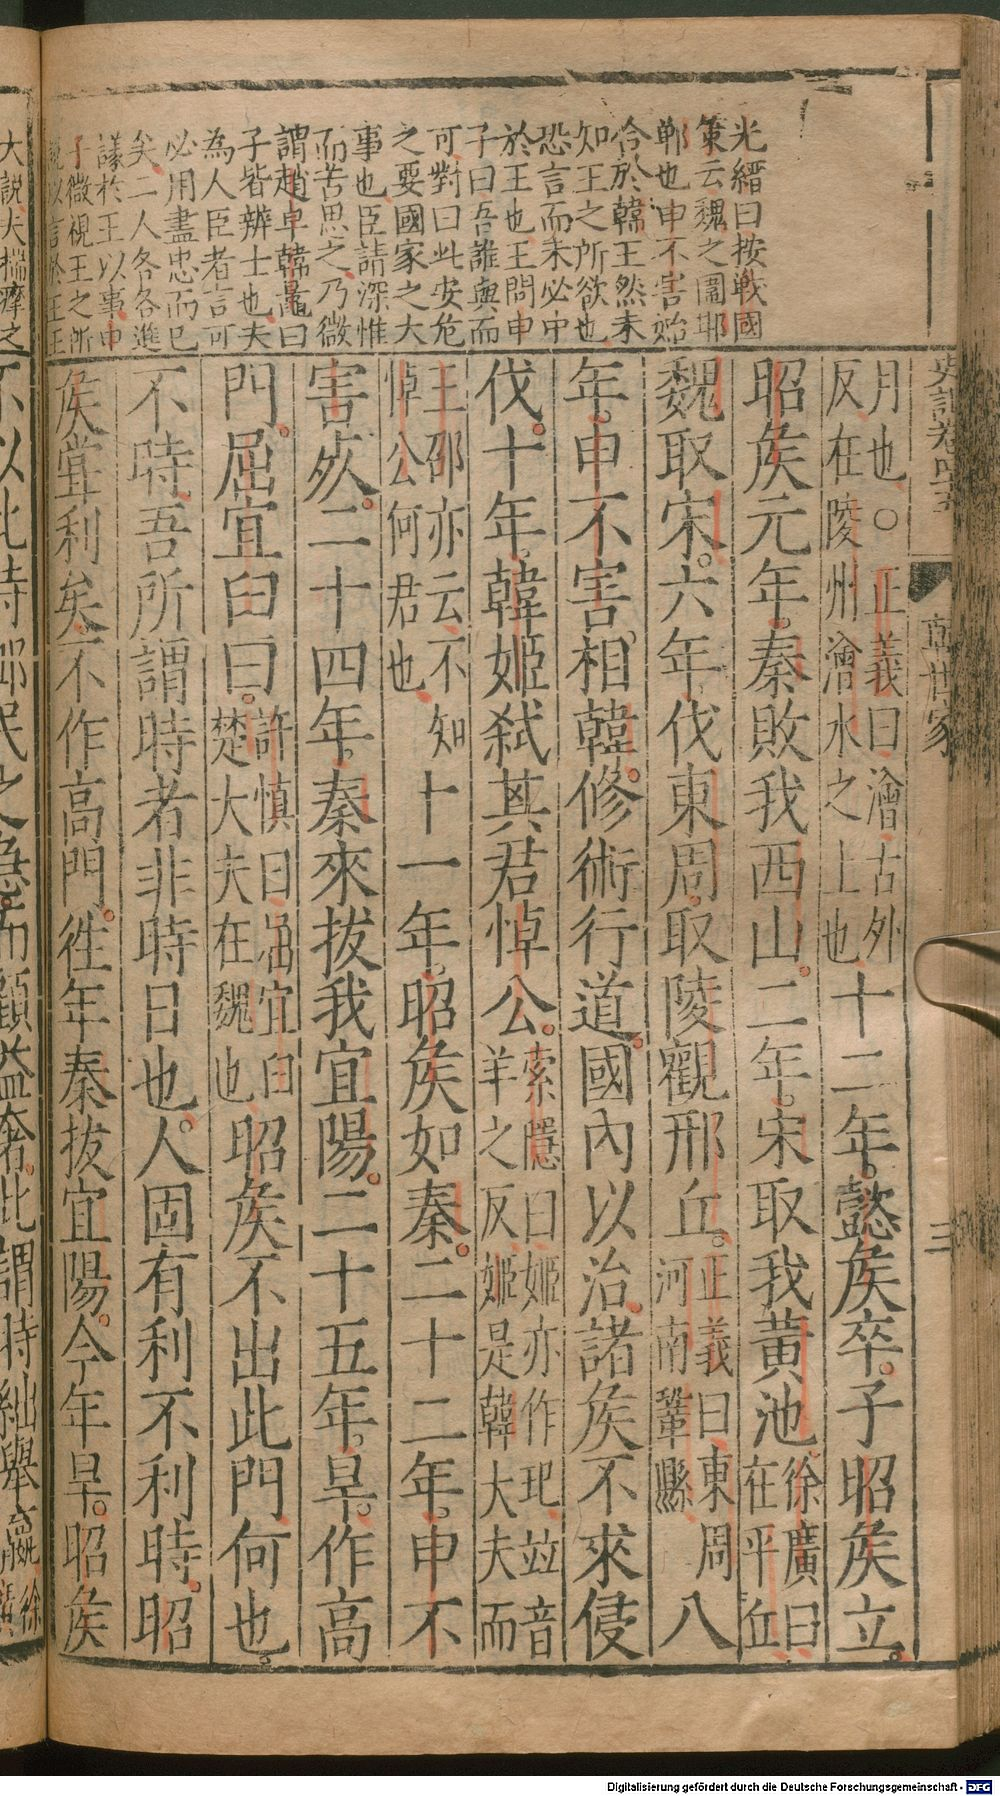 光縉曰按戰國
策云魏之圍邯
鄲也申不害始
合於韓王然未
知王之所欲也
恐言而未必中
於王也王問申
子曰吾誰與而
可對曰此安危
之要國家之大
事也臣請深惟
而苦思之乃微
謂趙卓韓鼂曰
子皆辨士也夫
為人臣者言可
必用盡忠而已
矣二人各各進
議於王以事申
子微視王之所
說以言於王王
史記卷四十五
韓世家
三
月也○正義曰澮古外
反在陵州澮水之上也
十二年懿矦卒子昭矦立
昭矦元年秦敗我西山二年宋取我黃池
徐廣曰
在平丘
魏取宋六年伐東周取陵觀邢丘
正義曰東周
河南鞏縣
八
年申不害相韓修術行道國內以治諸矦不來侵
伐十年韓姬弒其君悼公
索隱曰姬亦作𤣩竝音
羊之反姬是韓大夫而
王邵亦云不知
悼公何君也
十一年昭矦如秦二十二年申不
害死二十四年秦來拔我宜陽二十五年旱作高
門屈宜臼曰
許慎曰屈宜臼
楚大夫在魏也
昭矦不出此門何也
不時吾所謂時者非時日也人固有利不利時昭
矦嘗利矣不作高門徃年秦拔宜陽今年旱昭矦
大說大揣摩之
不以此時卹民之急而顧益奢此謂時絀舉贏
徐
廣
Digitalisierung gefördert durch die Deutsche Forschungsgemeinschaft - DFG